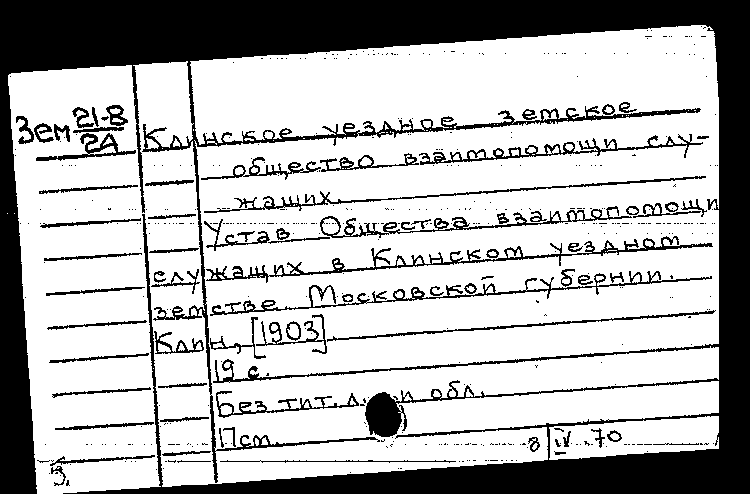 Зем 21-В/2А
Клинское уездное земское
общество взаимопомощи слу-
жащих.
Устав Общества взаимопомощи
служащих в Клинском уездном
земстве Московской губернии.
Клин, [1903].
19 с.
Без тит. л. и обл.
8|IV.70